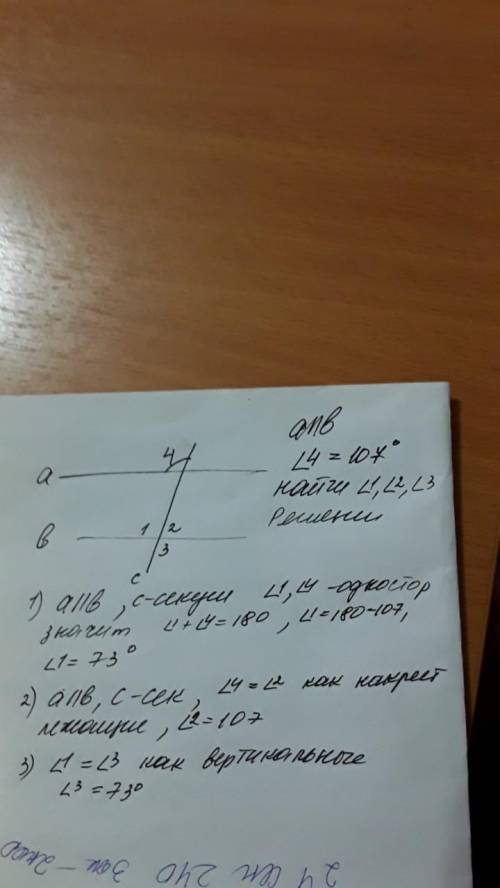 a || b
∠4 = 107°
найти ∠1, ∠2, ∠3
Решение
4
a
b
1 2
3
c
1) a || b, c-секущ ∠1, ∠4 - одностор
значит ∠1 + ∠4 = 180, ∠1 = 180-107,
∠1 = 73°
2) a || b, c-сек, ∠4 = ∠2 как накрест
лежащие, ∠2 = 107
3) ∠1 = ∠3 как вертикальные
∠3 = 73°
24 240